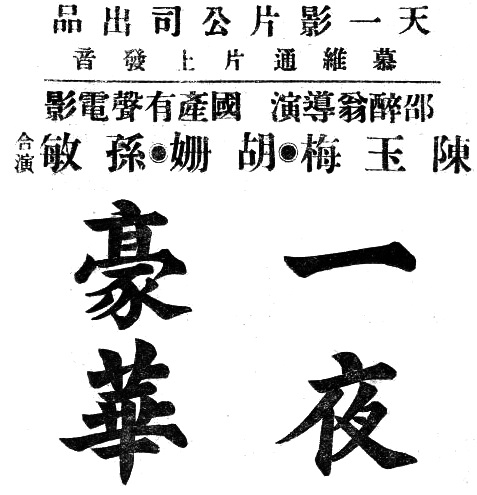 天一影片公司出品
慕維通片上發音
邵醉翁導演 國產有聲電影
陳玉梅●胡珊●孫敏 合演
一夜
豪華